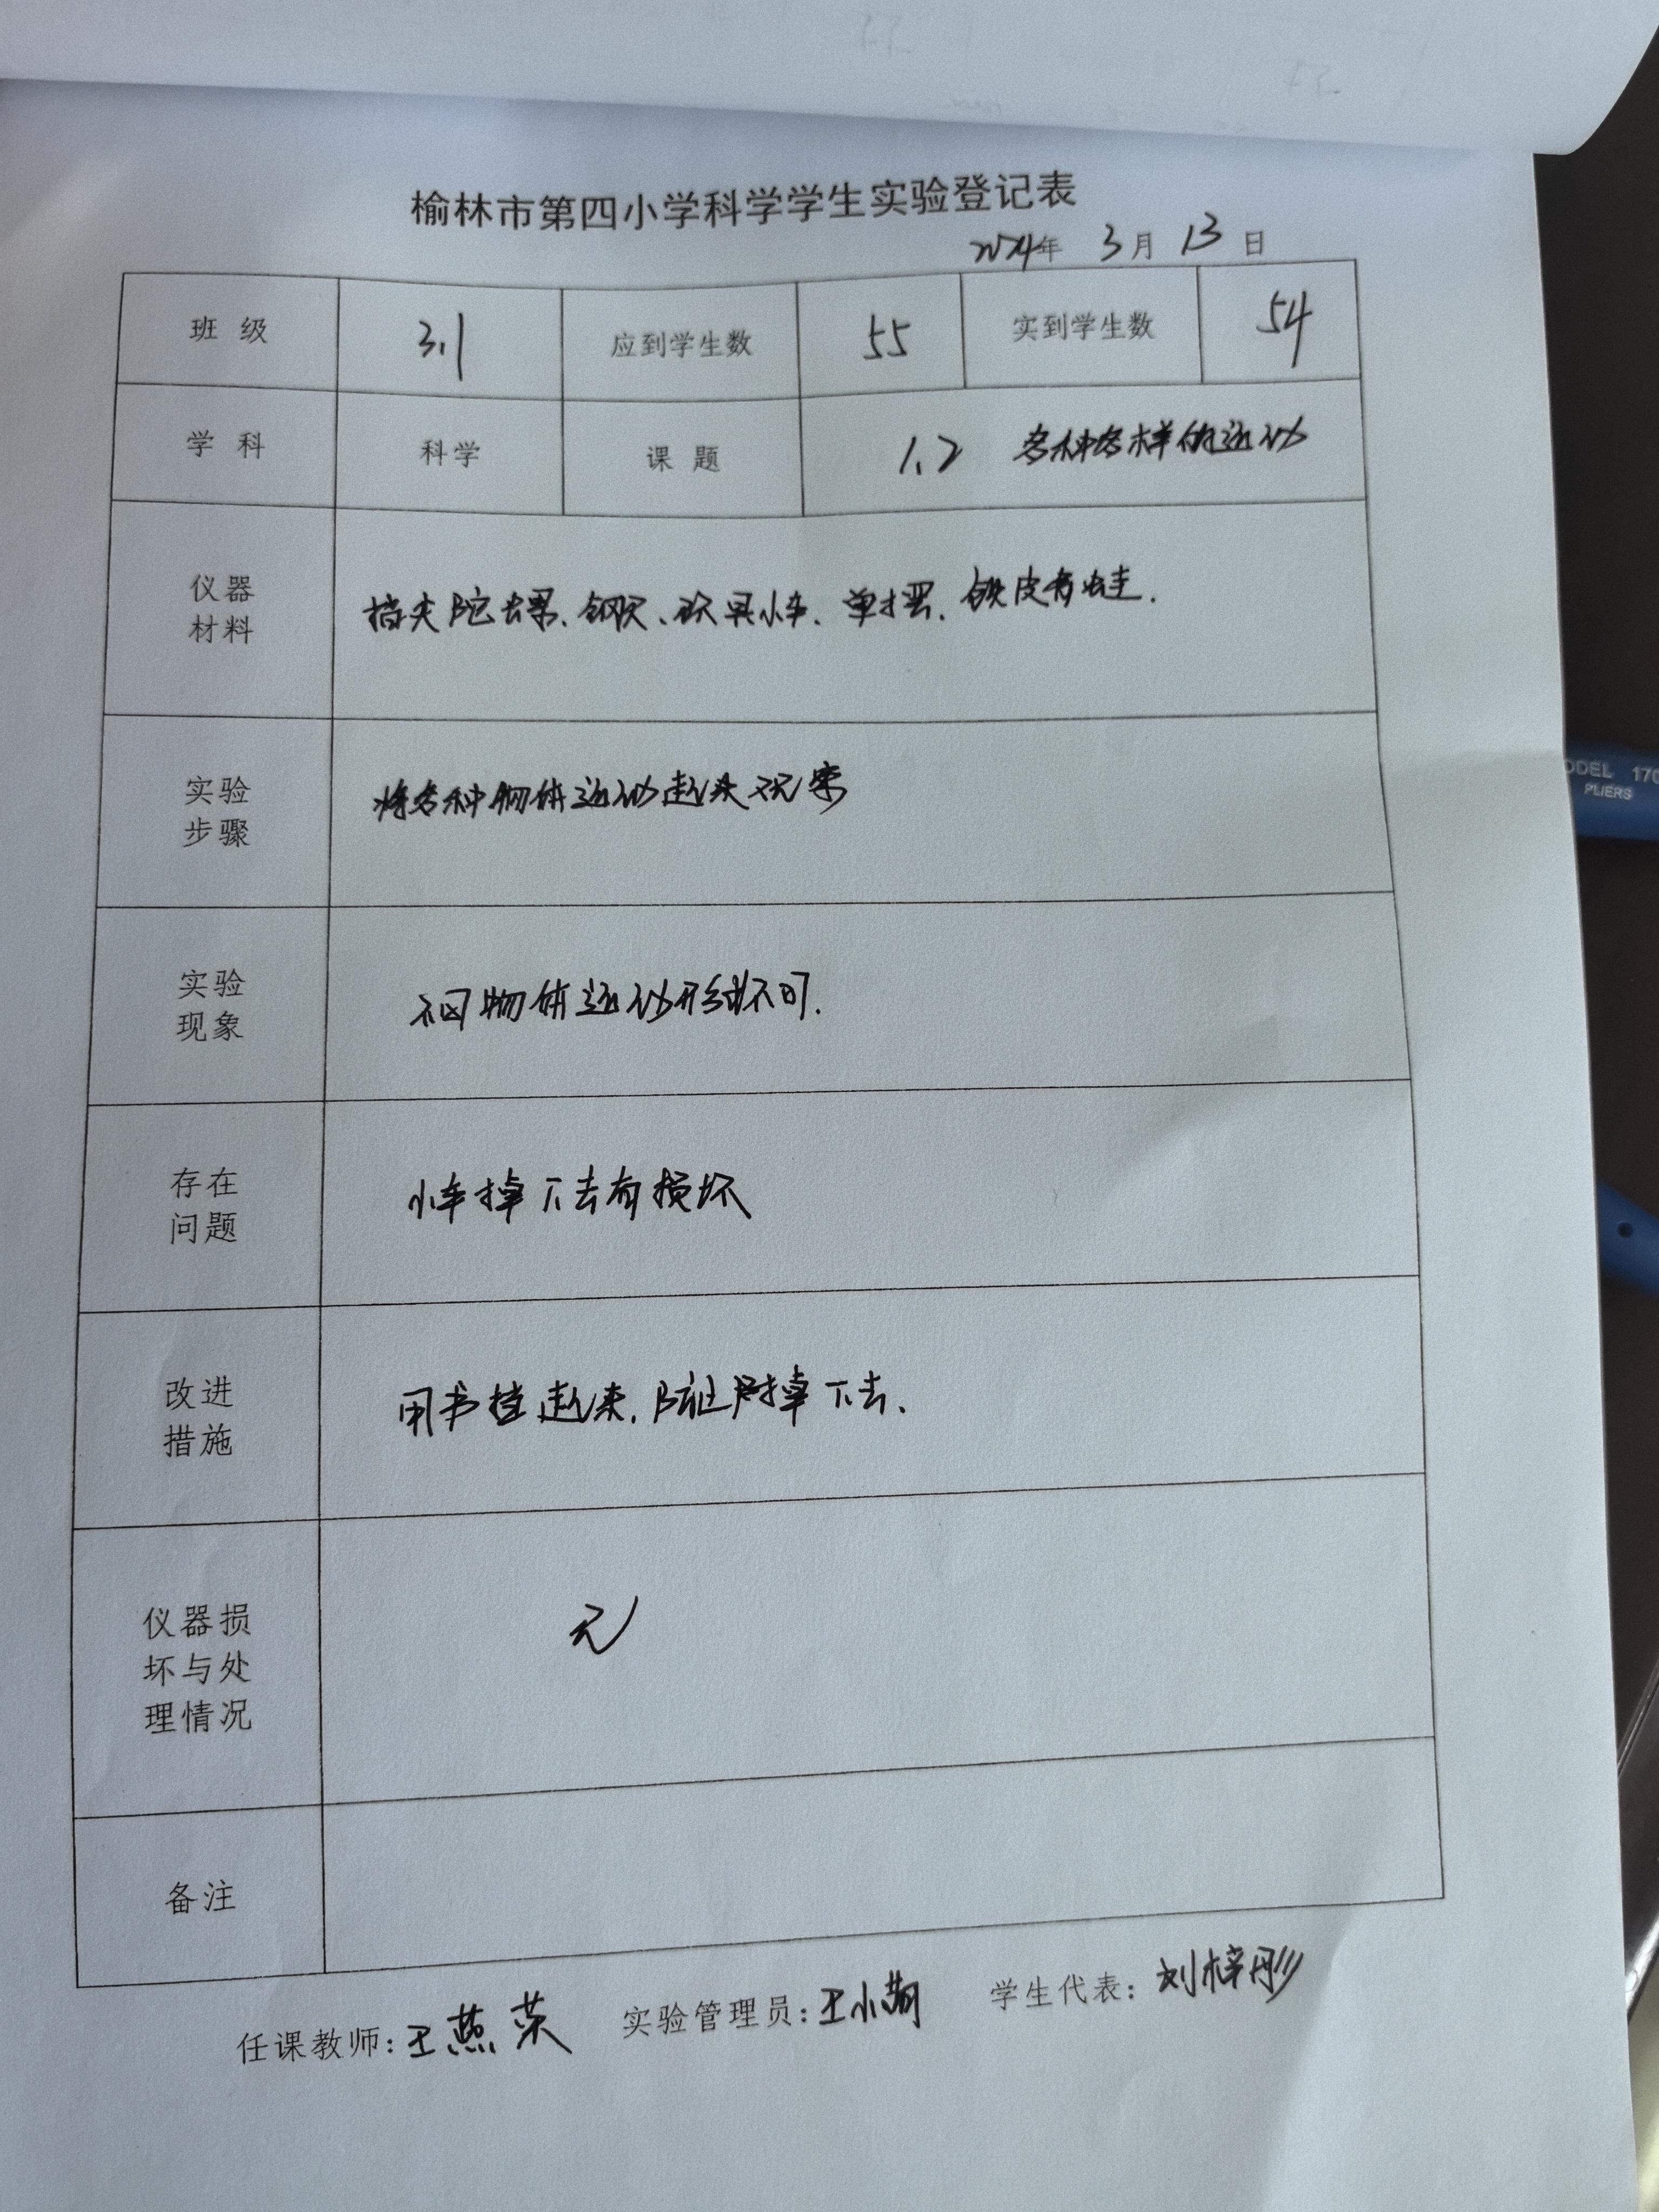 榆林市第四小学科学学生实验登记表
2024年 3月 13日
班 级 3.1 应到学生数 55 实到学生数 54
学 科 科学 课 题 1.2 各种各样的运动
仪器材料 指尖陀螺、钢尺、玩具小车、单摆、铁皮青蛙.
实验步骤 将各种物体运动起来观察
实验现象 不同物体运动形式不同.
存在问题 小车掉下去有损坏
改进措施 用书挡起来,防止掉下去.
仪器损坏与处理情况 无
备注
任课教师:王燕荣 实验管理员:王小 学生代表:刘梓彤
ODEL 170
PLIERS